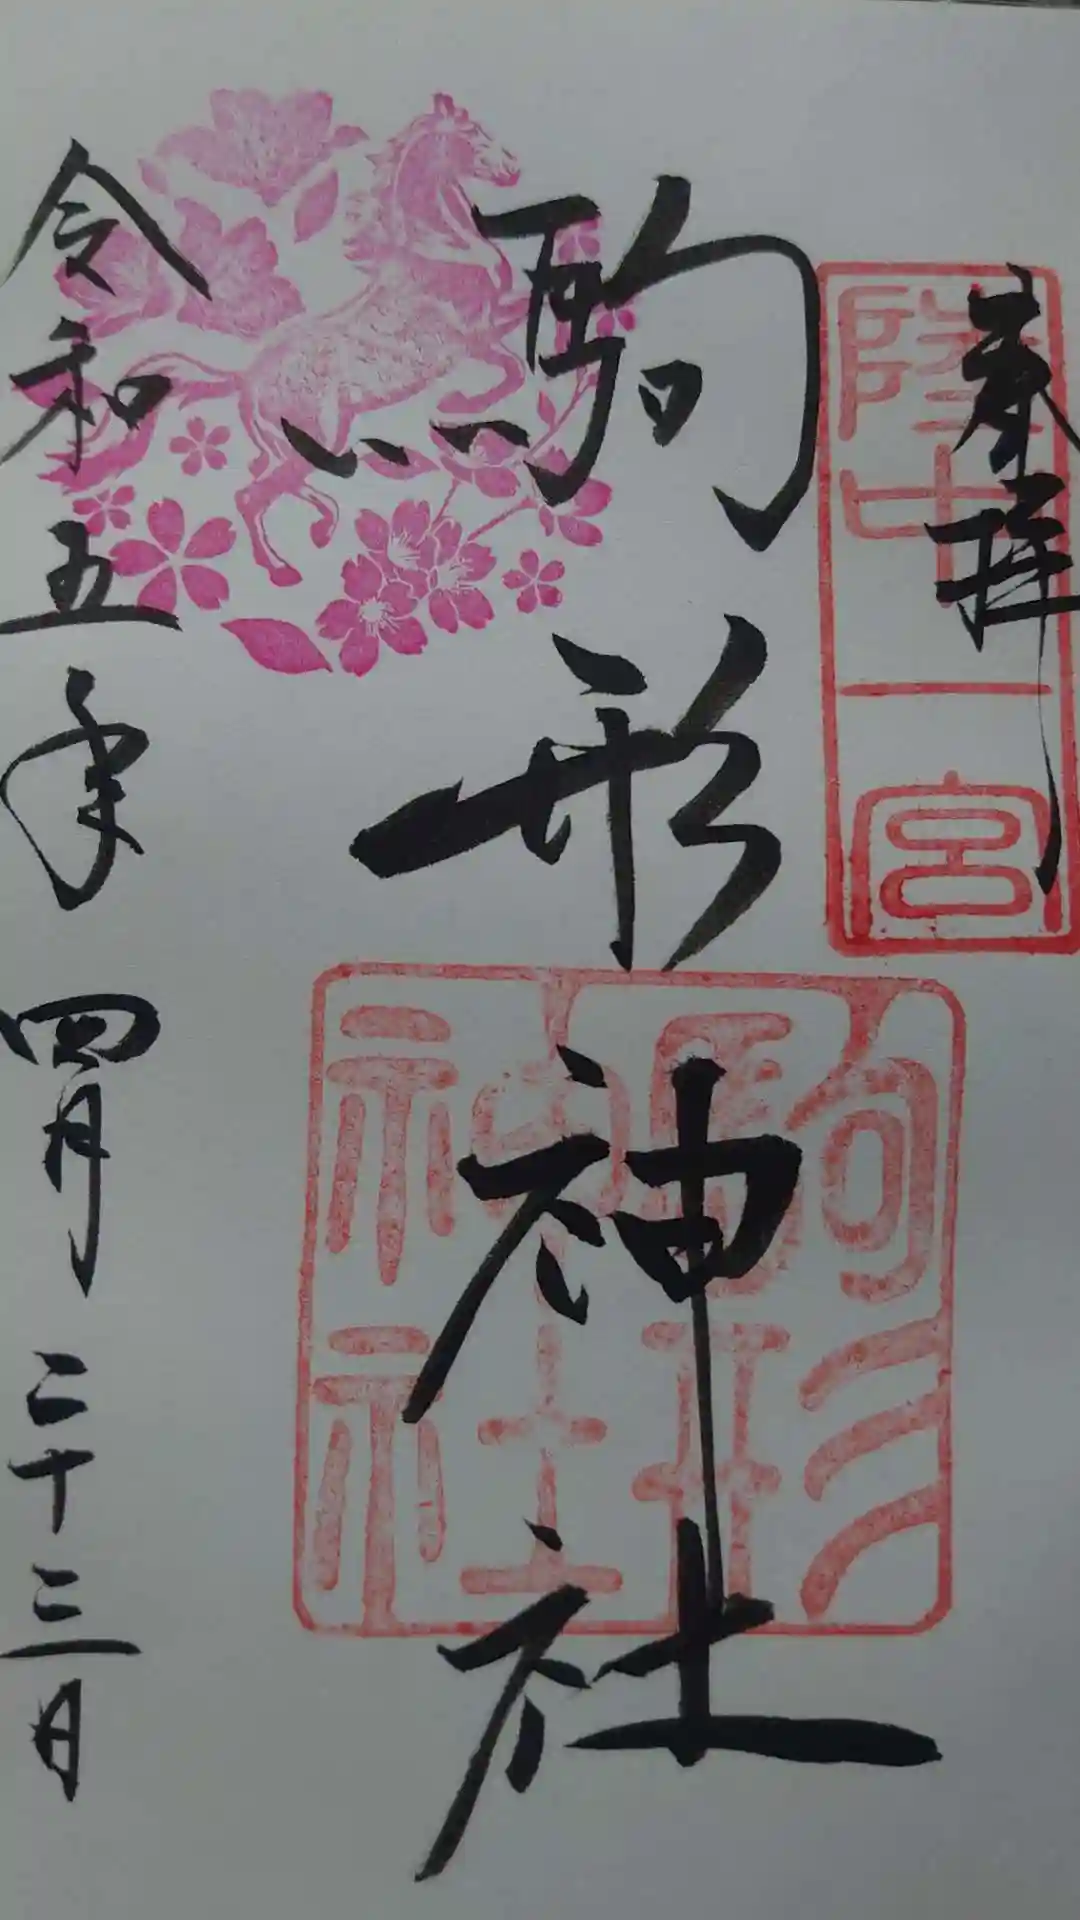 奉拝
陸中一宮
駒形神社
駒形
神社
令和五年四月二十三日